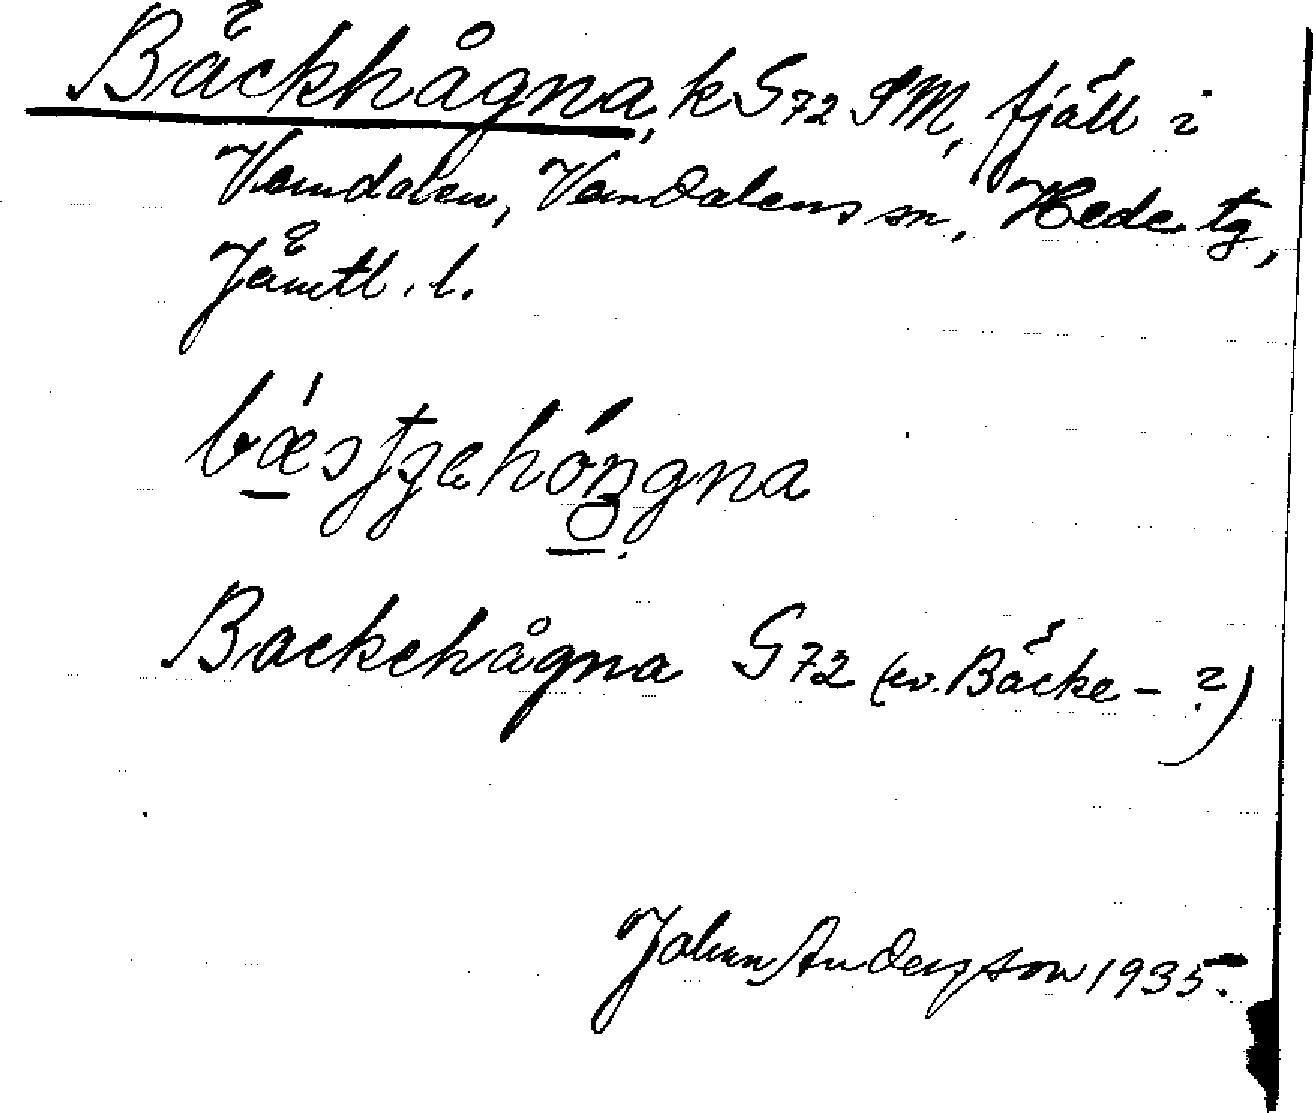 Bäckhågna, k G72 SM, fjäll i
Vemdalen, Vemdalens sn, Hede tg,
Jämtl. l.
Backehågna G72 (ev. Bäcke- ?)
Johan Anderson 1935.